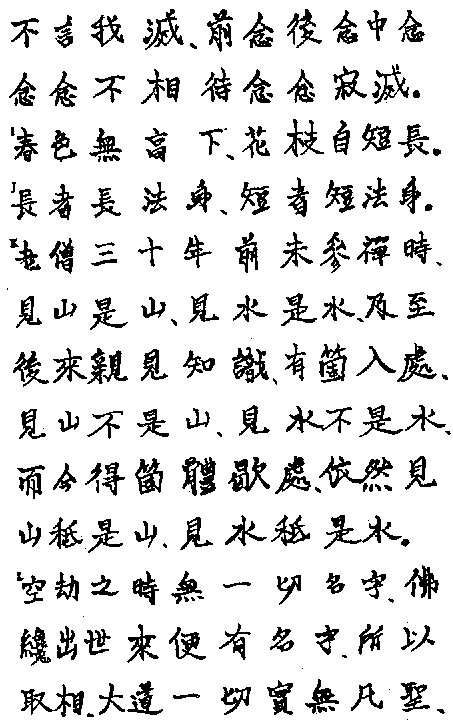 不言我滅、前念後念中念
念念不相待念念寂滅。
春色無高下、花枝自短長。
長者長法身、短者短法身。
老僧三十年前未參禪時、
見山是山、見水是水、及至
後來親見知識、有箇入處、
見山不是山、見水不是水、
而今得箇體歇處、依然見
山秪是山、見水秪是水。
空劫之時無一切名字、佛
纔出世來便有名字、所以
取相、大道一切實無凡聖、